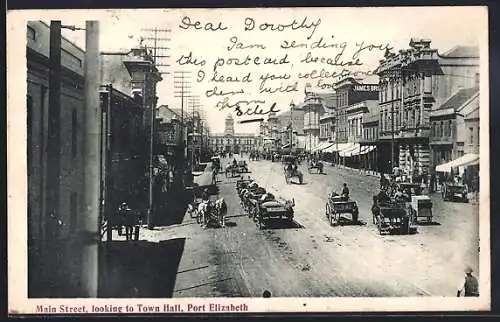 Dear Dorothy
Iam sending you
this postcard, because
I heard you collecting
them with
love
Elsie
JAMES
Main Street, looking to Town Hall, Port Elizabeth